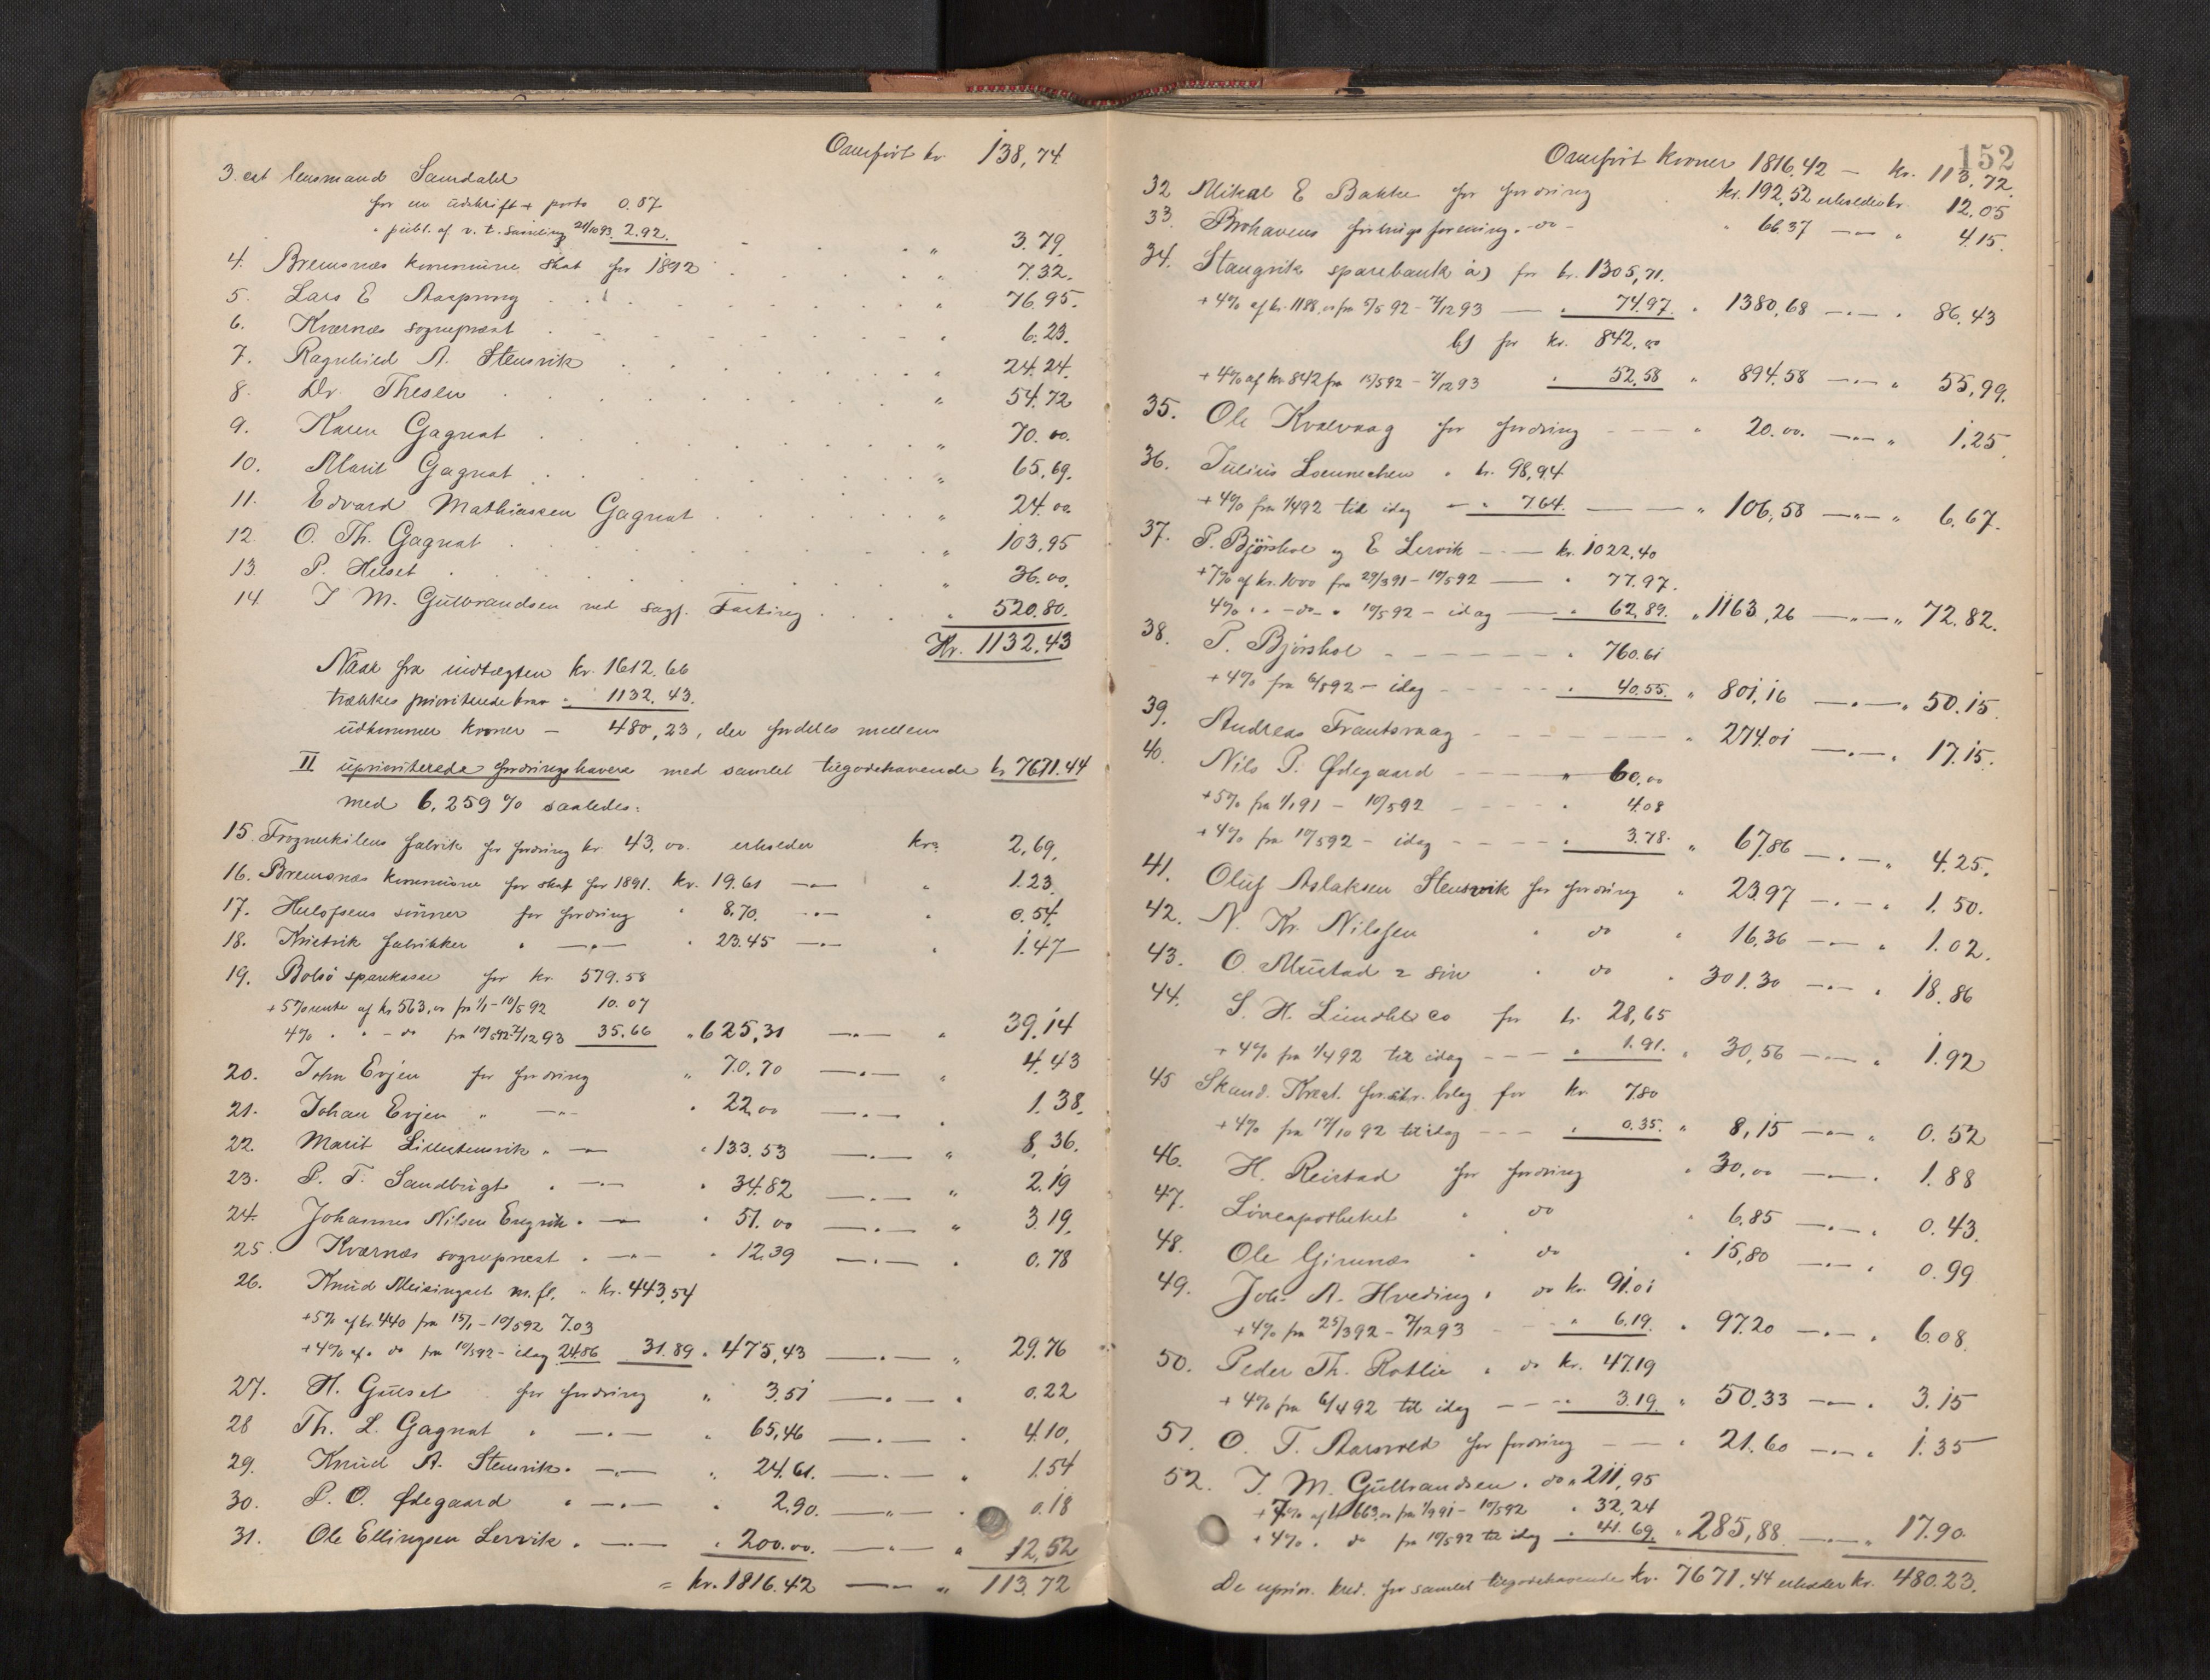 Overført kr. 138,74.
3. cst lensmand Samdahl
for en udskrift + porto 0.87
" publ. af v. t. samling 21/10 93. 2.92. " 3.79.
4. Bremsnæs kommune skat for 1892 " 7.32.
5. Lars E Aarpung " 76.95.
6. Kværnæs sogneprest " 6.23.
7. Ragnhild A. Stensvik " 24.24.
8. Dr. Thesen " 54.72
9. Karen Gagnat " 70.00.
10. Marit Gagnat " 65,69.
11. Edvard Mathiassen Gagnat " 24.00
12. O. Th. Gagnat " 103.95
13. P. Helset " 36.00.
14. I M. Gulbrandsen ved sagf. Fasting " 520.80.
Kr. 1132,43
Naar fra indtægten kr. 1612.66
trækkes prioriterede krav " 1132.43.
udkommer kroner – 480,23, der fordeles mellem
II upriviterede fordringshavere med samlet tilgodehavende kr 7671.44
med 6,259 % saaledes:
15. Frognerkilens fabrik for fordring kr. 43,00. erholder kr. 2,69.
16. Bremsnæs kommune for skat for 1891. kr. 19.61 — " — " 1.23.
17. Hulofsens sönner for fordring " 8.70. — " — " 0.54.
18. Knetrik fabrikker " — " — " 23.45 — " — " 1.47
19. Bolsö sparekasse for kr. 579.58
+ 5% rente af kr 563,00 fra 1/1 – 10/5 92 10.07
4% " " – do fra 10/5 92–7/12 93 35.66 " 625,31 — " — " 39.14
20. John Evjen for fordring " 70.70 — " — " 4.43
21. Johan Evjen " — " — " 22.00 — " — " 1.38.
22. Marit Lillestensvik " — " 133.53 — " — " 8,36.
23. P. T. Sandbugt " — " — " 34.82 — " — " 2.19
24. Johannes Nilsen Engvik " — " 51.00 — " — " 3.19.
25. Kværnæs sogneprest " — " — " 12.39 — " — " 0.78
26. Knud Meisingset m. fl. " kr. 443,54
+ 5% af kr. 440 fra 15/1 – 10/5 92 7.03
+ 4% af " do fra 10/5 92 – idag 24.86 31.89 " 475,43 — " — " 29.76
27. H. Gulset for fordring " 3.51 — " — " 0.22
28 Th. L. Gagnat " — " — " 65,46 — " — " 4.10.
29. Knud A. Stensvik " — " — " 24.61. — " — " 1.54
30. P. O. Ødegaard " — " — " 2.90. — " — " 0.18
31. Ole Ellingsen Lervik " — " — " 200.00. — " — " 12,52
= kr. 1816.42 — " — " 113.72
152
Overført kroner 1816,42 – kr. 113,72.
32 Mikal E Bakke for fordring kr. 192,52 erholder kr. 12.05
33. Brohavens forening " do – " 66.37 — " — " 4.15.
34. Stangvik sparebank a) for kr. 1305,71.
+ 4% af kr. 1188,00 fra 5/5 92 – 7/12 93 — " 74.97. " 1380,68 — " — " 86,43
b) for kr. 842.00
+ 4% af kr 842 fra 15/5 92 – 7/12 93 " 52.58 " 894.58 — " — " 55,99.
35. Ole Kvalvaag for fordring – – – " 20.00. — " — " 1.25.
36. Julius Loennechen " kr. 98,94
+ 4% fra 1/1 92 til idag — " 7.64. — — " 106,58 — " — " 6.67.
37. P. Björshol og E Lervik – – — kr. 1022.40
+ 7% af kr. 1000 fra 29/3 91 – 10/5 92 — " 77.97.
4% " " – do – " 10/5 92 – idag — " 62.89. " 1163,26 — " — " 72.82.
38. P. Björshol – – – – – – " 760.61
+ 4% fra 6/8 92 – idag – – – – " 40.55. " 801,16 — " — " 50.15.
39. Andreas Frantsvaag – – – – – – – " 274.01 — " — " 17.15.
40. Nils P. Ødegaard – – – — " 60,00
+ 5% fra 1/1 91 – 10/5 92 – – – – " 4.08
+ 4% fra 10/5 92 – idag – – – – " 3.78. " 67.86 — " — " 4.25.
41. Oluf Aslaksen Stensvik for fordring " 23.97 — " — " 1.50.
42. N. Kr. Nilssen " do " 16,36 — " — " 1.02.
43. O Mustad & sön " do " 301.30 — " — " 18.86
44. S. H. Lundh & co for kr. 28,65
+ 4% fra 1/4 92 til idag – – – " 1.91. " 30,56 — " — " 1.92
45 Skand. Kreat. forsikr. bolag for kr. 7.80
+ 4% fra 17/10 92 til idag – – – " 0.35. " 8,15 — " — " 0.52
46. H. Reistad for fordring " 30,00 — " — " 1.88
47. Löveapotheket " do " 6.85 — " — " 0.43.
48. Ole Girmnæs " do " 15,80 — " — " 0.99
49. Joh. A. Hveding " do kr. 91.01
+ 4% fra 25/3 92 – 7/12 93 – – – " 6.19. " 97.20 — " — " 6.08.
50. Peder Th. Rotlie " do kr. 47.19
+ 4% fra 6/4 92 til idag – – – " 3.19. " 50.33 — " — " 3.15
51. O. T. Aarsvold for fordring – – – " 21.60 — " — " 1.35
52. I. M. Gulbrandsen " do " 211,95
+ 7% af kr 663,00 fra 1/9 91 – 10/5 92 " 32,24
+ 4% " do fra 10/5 92 til idag " 41.69. " 285,88 — " — " 17.90.
De uprior. kred. for samlet tilgodehavende kr. 7671,44 erholder kr. 480.23.